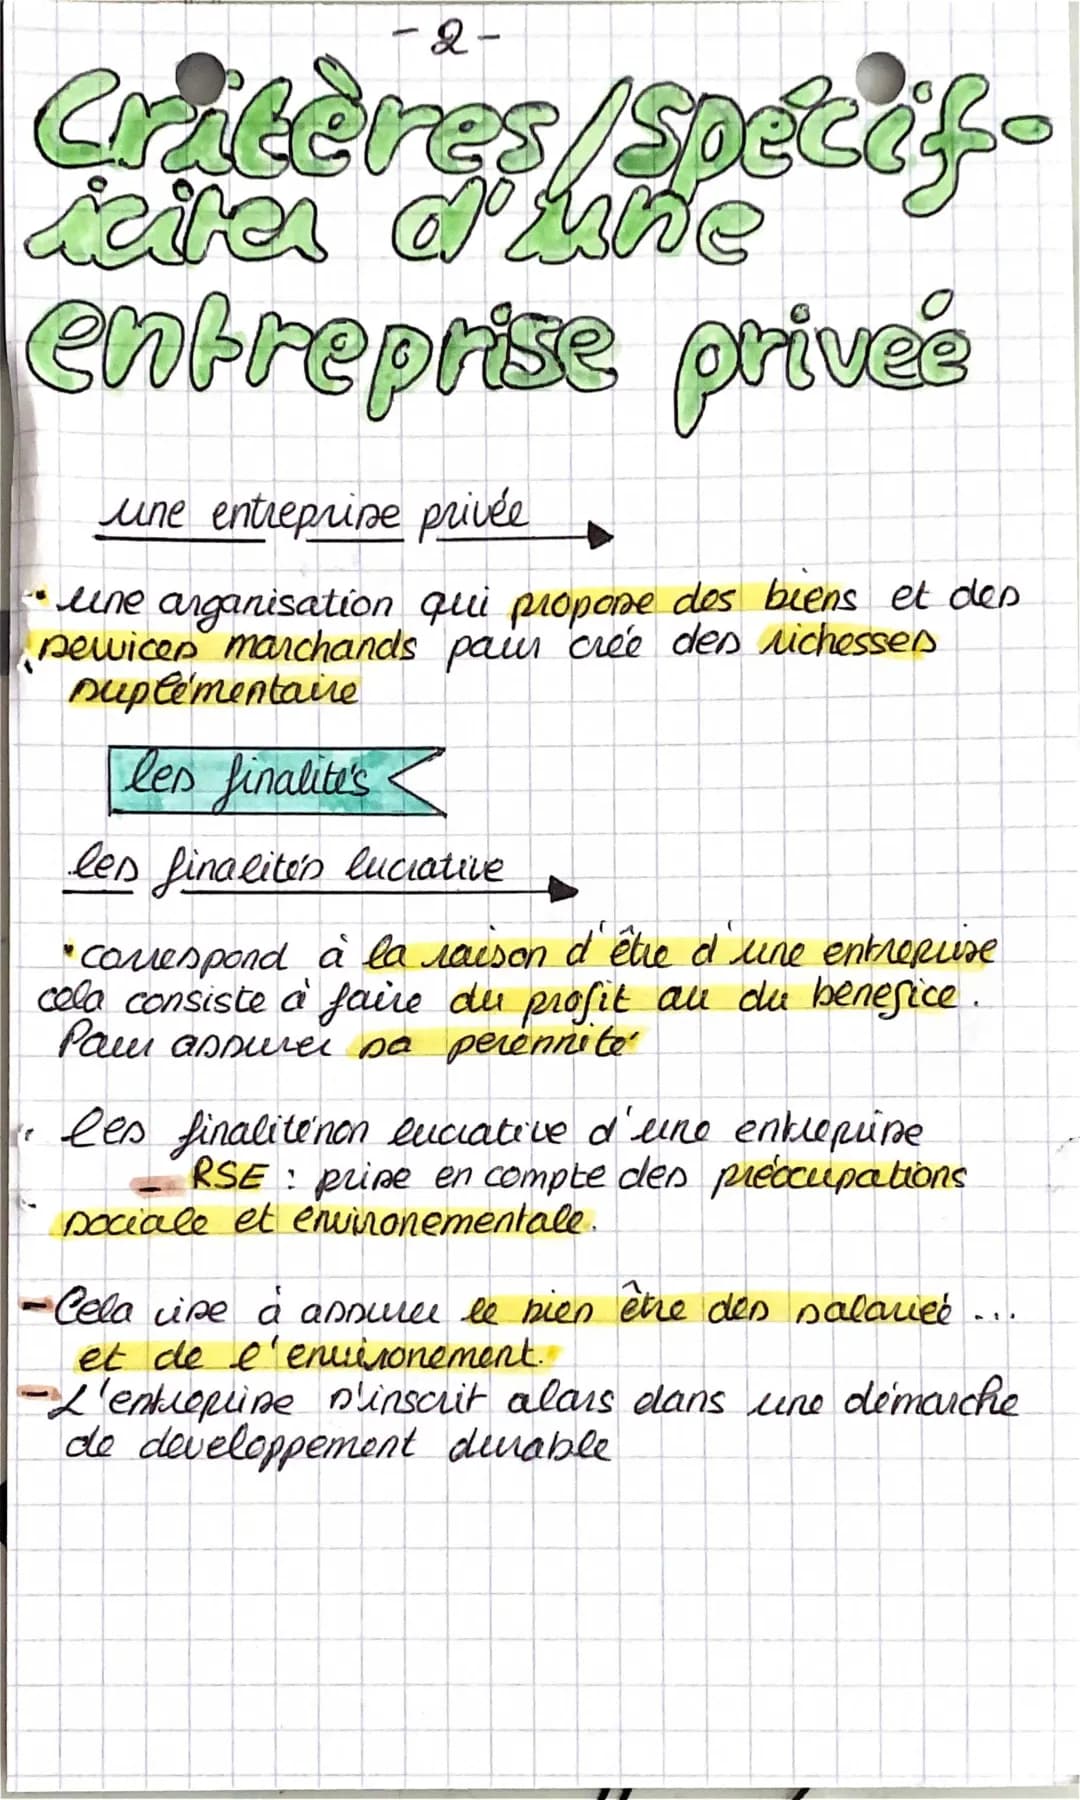 - 2 -
Critères/Spécif-
icites d'une
entreprise priveé
une entreprise privée
• une organisation qui propose des biens et des
services marchands pour crée des richesses
suplémentaire
les finalités
les finalités lucrative
• correspond à la raison d'être d'une entreprise
cela consiste à faire du profit ou du benefice.
Pour assurer sa perénnité
les finalité non lucrative d'une entreprise
- RSE : prise en compte des préoccupations
sociale et environementale.
- Cela vise à assurer le bien être des salarieé ...
et de l'environement.
- L'entreprise s'inscrit alors dans une démarche
de developpement durable